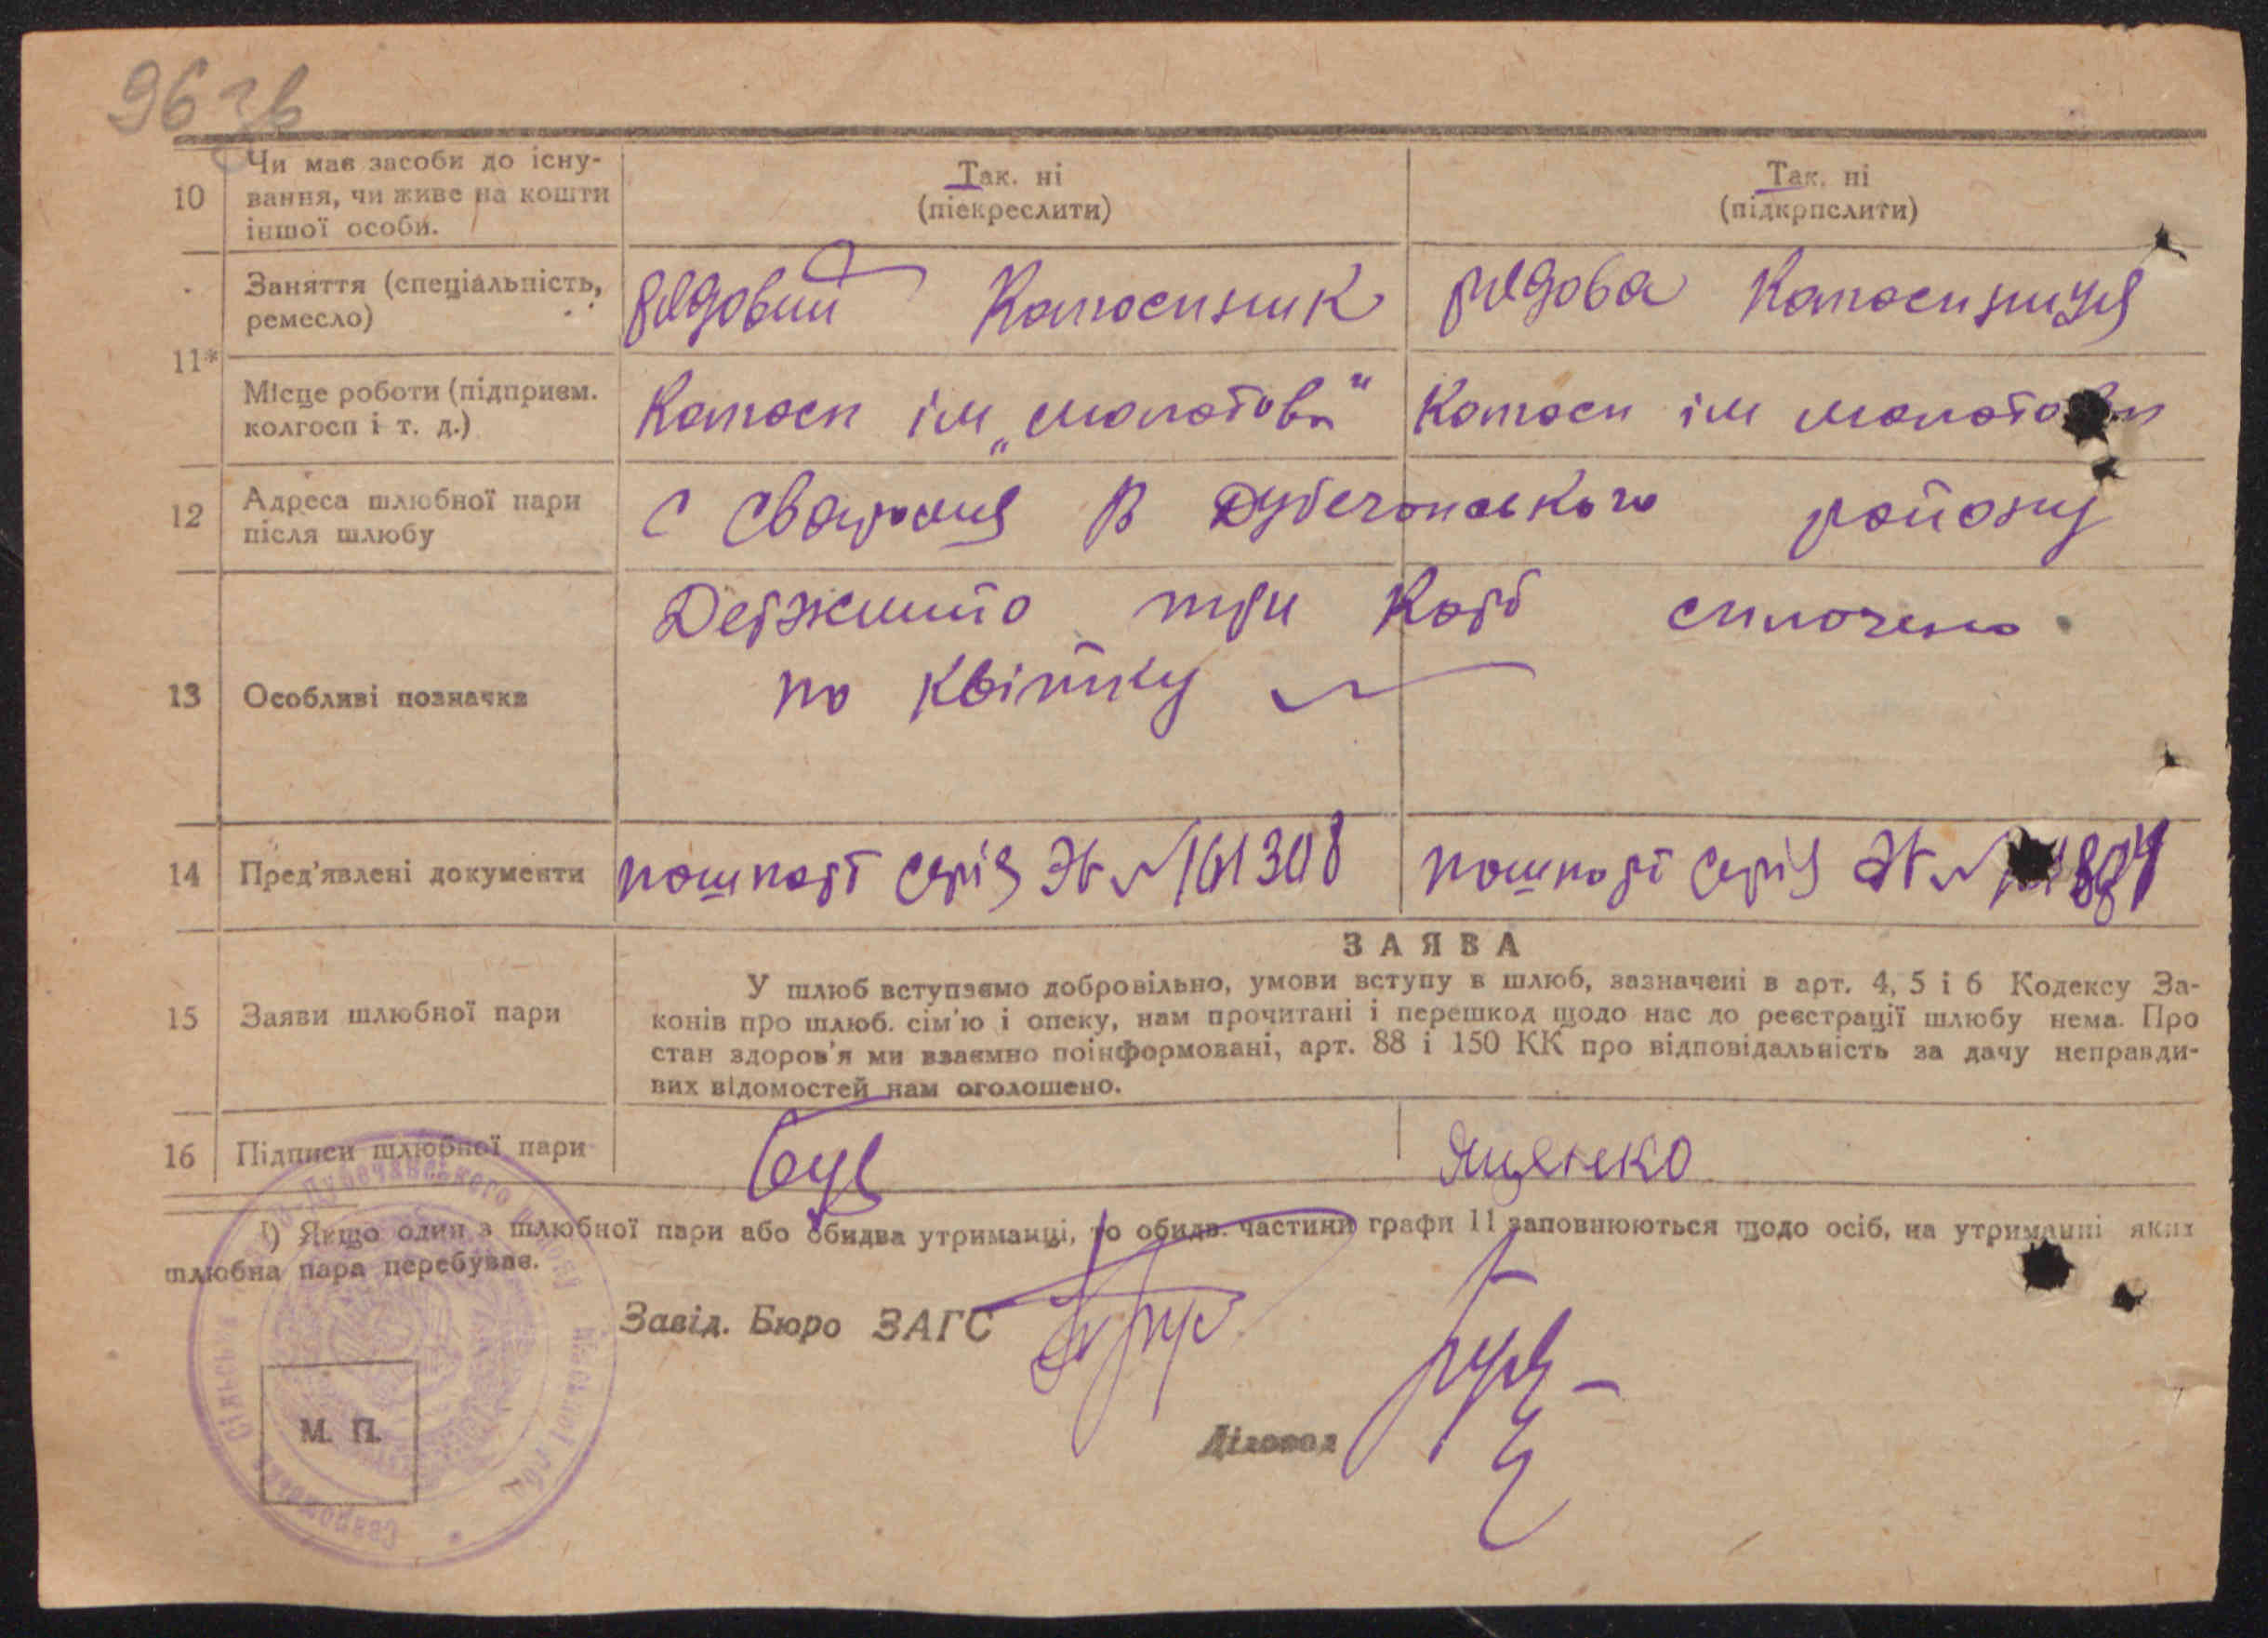 96 зв
10 Чи має засоби до існу-
вання, чи живе на кошти
іншої особи.
Так. ні
(піекреслити)
Так. ні
(підкрпслити)
11*
Заняття (спеціальність,
ремесло)
рядовий Колгоспник
рядова Колгоспниця
Місце роботи (підприєм.
колгосп і т. д.)
Колгосп ім „Молотова"
Колгосп ім Молотова
12 Адреса шлюбної пари
після шлюбу
с Сваромя В Дубечанського району
13 Особливі позначки
Держмито три карб сплочено
по квітку
14 Пред'явлені документи
пошпорт серія ЭБ № 161308
пошпорт серія ЭБ №
15 Заяви шлюбної пари
ЗАЯВА
У шлюб вступаємо добровільно, умови вступу в шлюб, зазначені в арт. 4, 5 і 6 Кодексу За-
конів про шлюб. сім'ю і опеку, нам прочитані і перешкод щодо нас до реєстрації шлюбу нема. Про
стан здоров'я ми взаємно поінформовані, арт. 88 і 150 КК про відповідальність за дачу неправди-
вих відомостей нам оголошено.
16 Підписи шлюбної пари
Яценко
¹) Якщо один з шлюбної пари або обидва утриманці, то обидв. частини графи 11 заповнюються щодо осіб, на утриманні яких
шлюбна пара перебуває.
Завід. Бюро ЗАГС
Діловод
М. П.